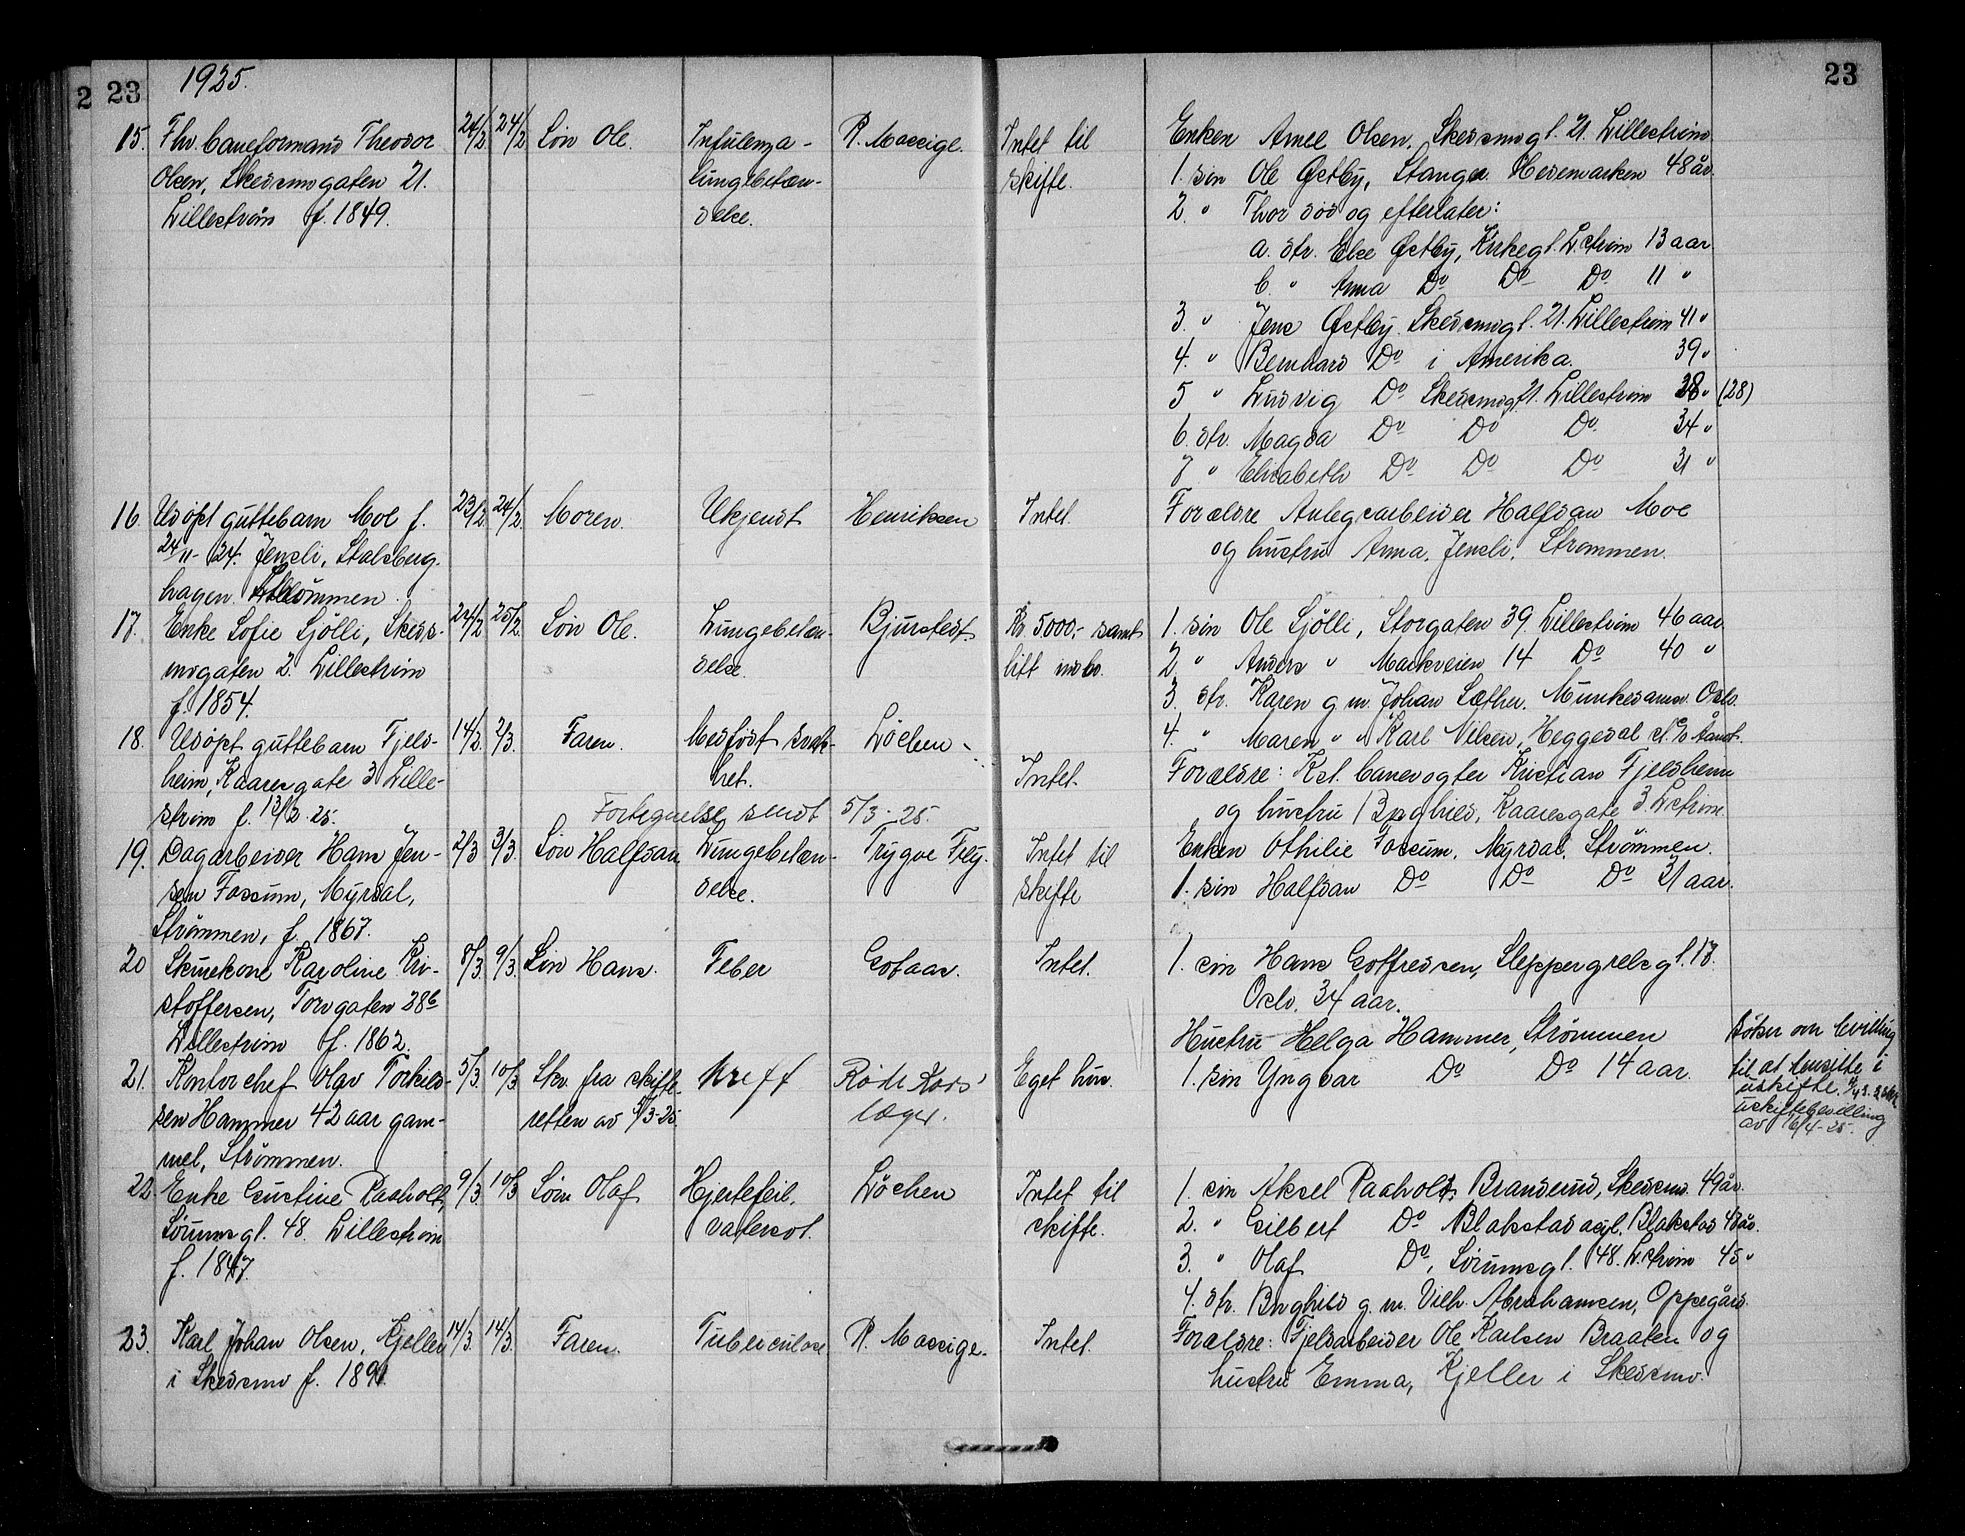 2 23 1925. 23
15. Fhv. baneformand Theodor 24/2 24/2 Søn Ole. Infulenza- R. Massige. Intet til
Olsen, Skedsmogaten 21. lungebetæn- skifte.
Lillestrøm f. 1849. delse.
Enken Amel Olsen, Skedsmogt. 21. Lillestrøm
1. søn Ole Østby, Stange Hedemarken 48 år.
2. " Thor død og efterlater:
a. dtr. Else Østby, Kirkegt. L.strøm 13 aar.
b. " Anna Do Do Do 11 "
3. " Jens Østby Skedsmogt. 21. Lillestrøm 41 "
4. " Bernhard Do i Amerika 39 "
5 " Ludvig Do Skedsmogt. 21. Lillestrøm 28 " (28)
6. dtr. Magda Do Do Do 34 "
7 " Elisabeth Do Do Do 31 "
16. Udøpt guttebarn Moe f. 23/2 24/2 Moren. Ukjendt Henriksen Intet.
24/11-24. Jensli, Stalsberg-
hagen. Strømmen.
Forældre Anlegsarbeider Halfdan Moe
og hustru Anna, Jensli, Strømmen.
17. Enke Sofie Sjølli, Skeds- 24/2 25/2 Søn Ole. Lungebetæn- Bjurstedt Kr. 5000,- samt
mogaten 2. Lillestrøm delse. litt indbo.
f. 1854.
1. søn Ole Sjølli, Storgaten 39 Lillestrøm 46 aar.
2 " Anders " Markveien 14 Do 40 "
3 dtr. Karen g. m. Johan Sæther. Munkedamsv. Oslo.
4. " Maren " " Karl Nilsen, Heggedal st. Åmot.
18. Udøpt guttebarn Fjeld- 14/2 2/3 Faren. Medfødt svak- Løchen Intet.
heim, Kaaresgate 3 Lille- het.
strøm f. 13/2 25. Fortegnelse sendt 5/3-25.
Forældre: Kst. banevogter Kristian Fjeldheim
og hustru Borghild, Kaaresgate 3 L.strøm.
19. Dagarbeider Hans Jen- 2/3 3/3. Søn Halfdan Lungebetæn- Trygve Fley. Intet til
sen Fossum, Myrdal, delse. skifte
Strømmen, f. 1867.
Enken Othilie Fossum, Myrdal, Strømmen.
1. søn Halfdan Do Do Do 21 aar.
20 Skurekone Karoline Kri- 8/3 9/3. Søn Hans. Feber Gotaas. Intet.
stoffersen, Torvgaten 28b
Lillestrøm f. 1862.
1. søn Hans Gotfredsen, Sleppegrelsgt. 18.
Oslo. 34 aar.
21. Kontorchef Olav Torkild- 5/3. 10/3 Skr. fra skifte- Kreft Røde Kors' Eget hus.
sen Hammer 42 aar gam- retten av 5/3-25. læge.
mel, Strømmen.
Hustru Helga Hammer, Strømmen
1. søn Yngvar Do Do 14 aar.
Søker om bevilling
til at hensitte i
uskifte.
uskiftebevilling
av 16/4-25.
22. Enke Gustine Paaholt, 9/3 10/3 Søn Olaf Hjertefeil. Løchen Intet til
Sørumsgt. 48. Lillestrøm vatersot. skifte.
f. 1847.
1. søn Aksel Paaholt, Brandrud, Skedsmo 49 år.
2. " Gilbert Do Blakstad asyl, Blakstad 48 år.
3. " Olaf Do, Sørumsgt. 48. L.strøm 45 "
4. dtr. Borghild g. m. Vilh. Abrahamsen, Oppegård.
23. Karl Johan Olsen, Kjeller 14/3. 14/3. Faren. Tuberculose R. Massige. Intet.
i Skedsmo f. 1891.
Forældre: Fjeldarbeider Ole Karlsen Braaten og
hustru Emma, Kjeller i Skedsmo.